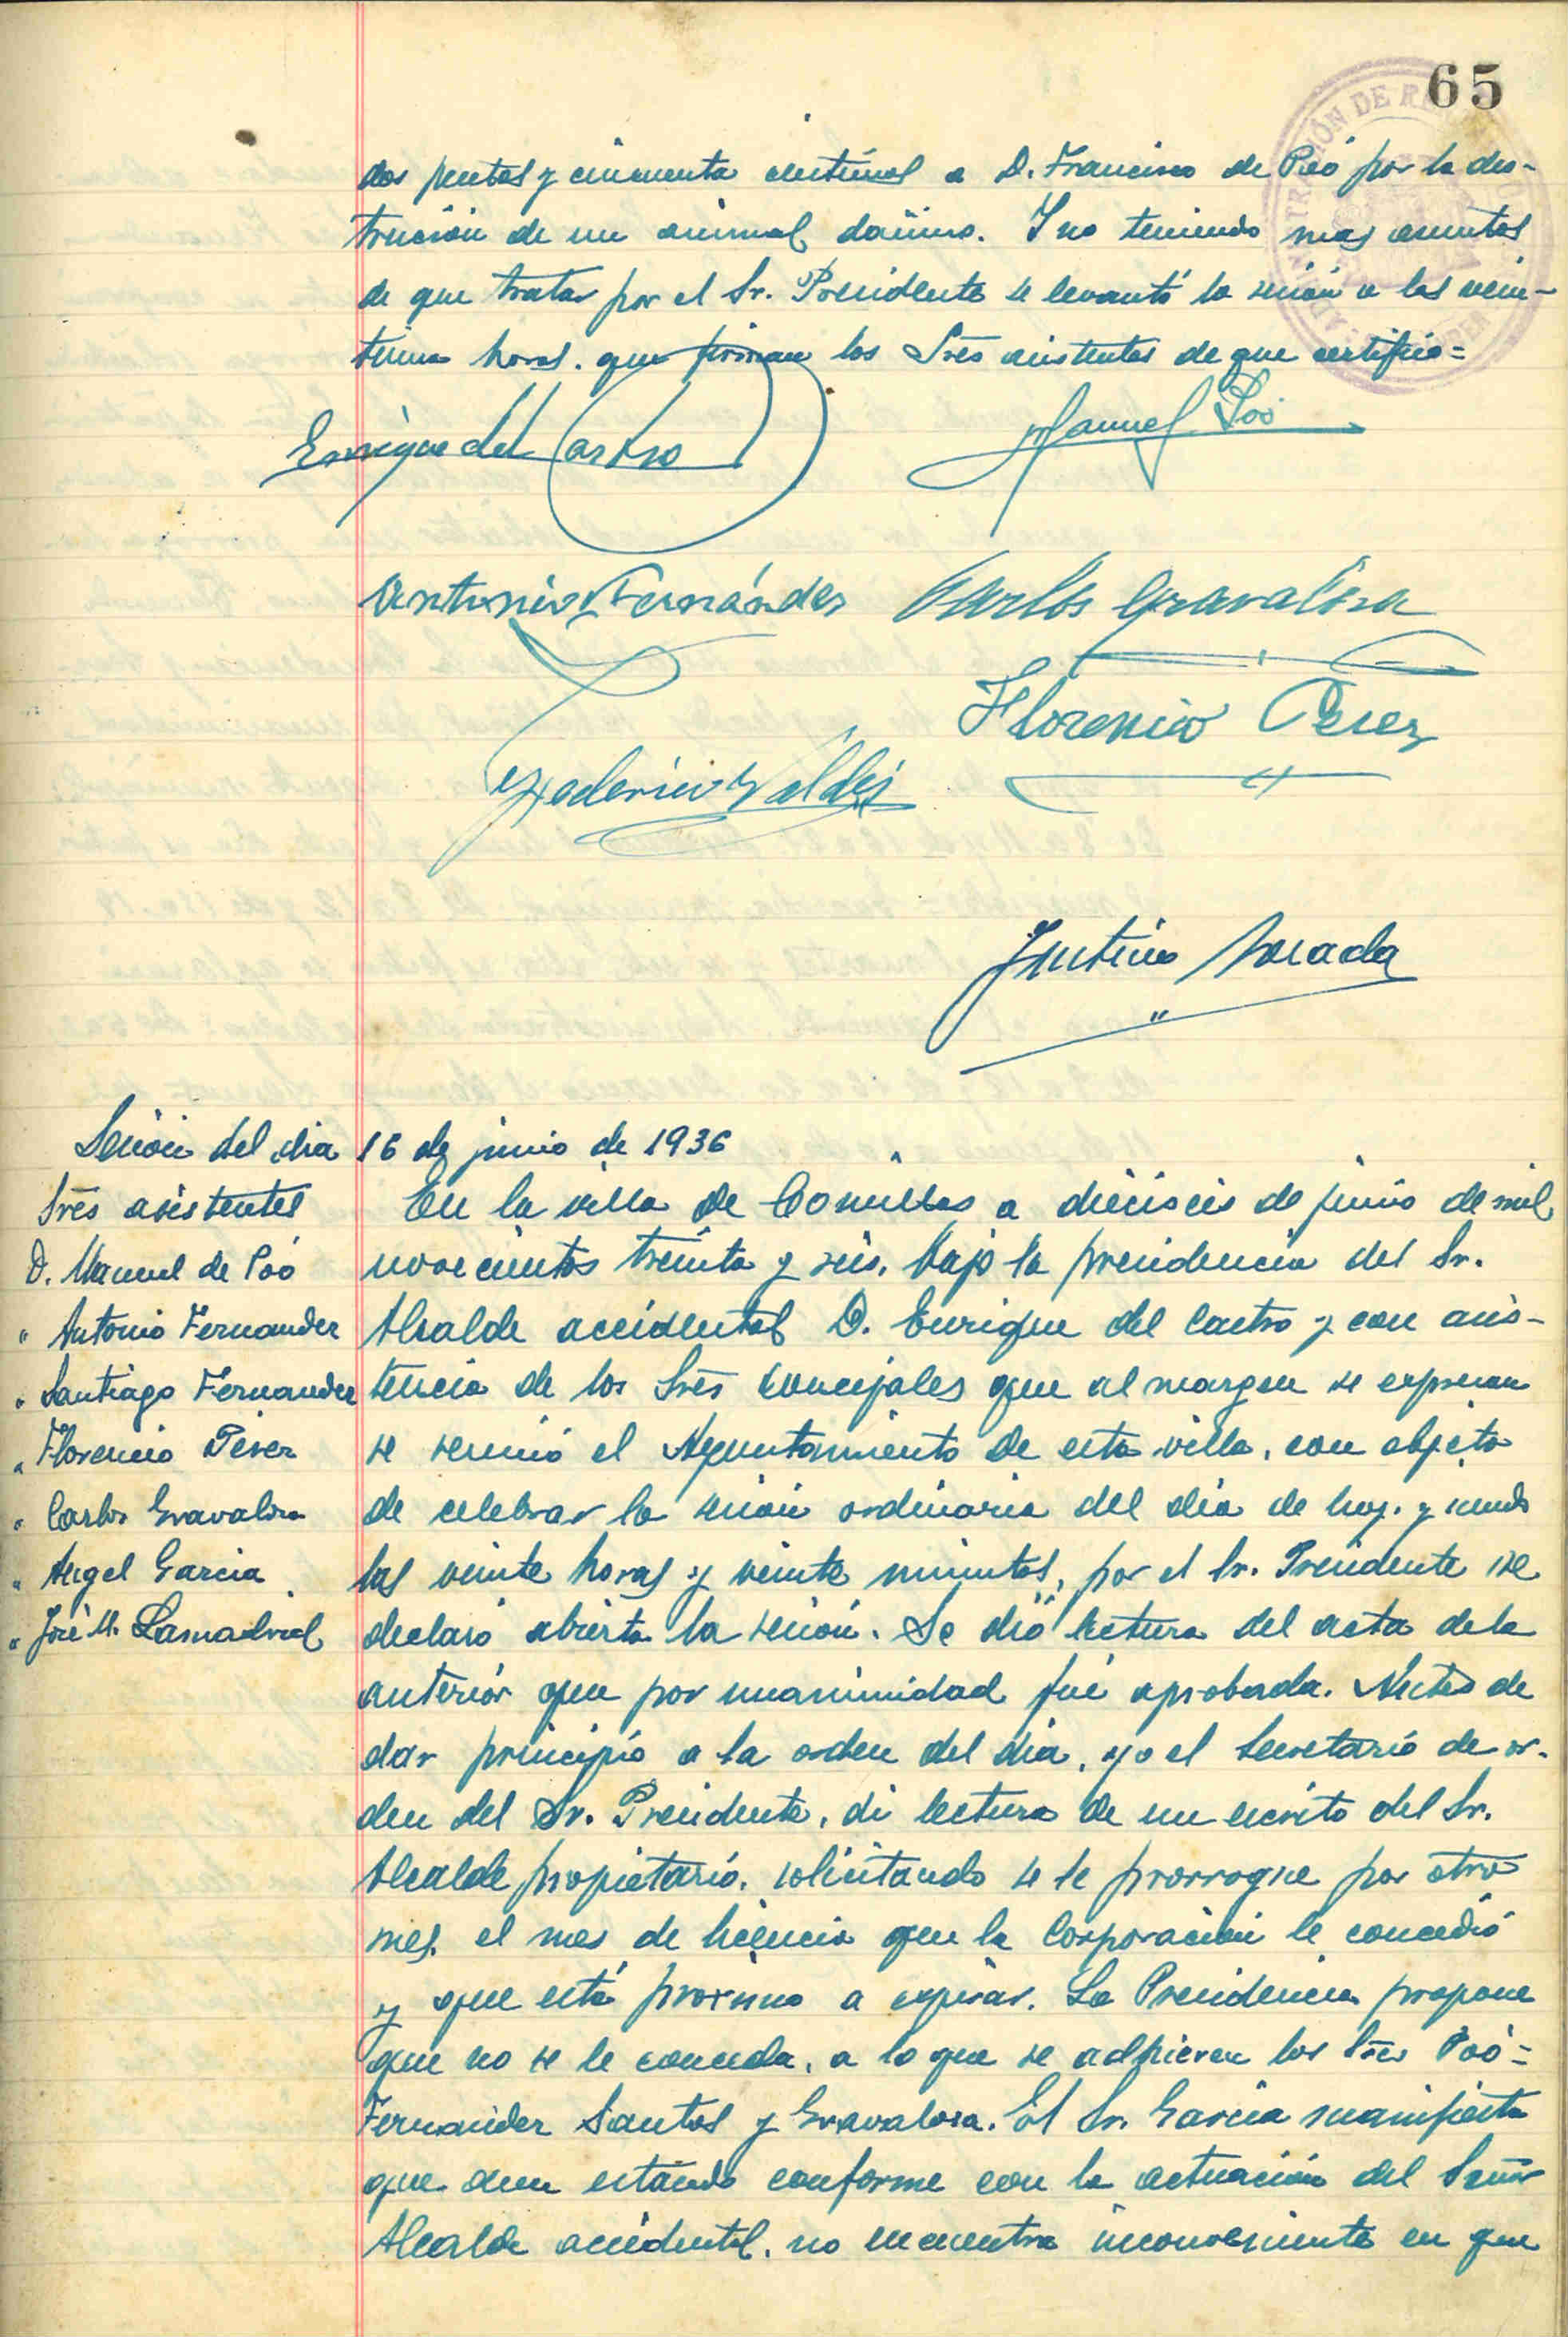 65
dos pesetas y cincuenta centimos a D. Francisco de Poó por la des-
trucion de un animal dañino. Y no teniendo mas asuntos
de que tratar por el Sr. Presidente se levantó la sesión a las vein-
tiuna horas. que firman los Sres asistentes de que certifico=
Enrique del Castro
Manuel Poó
Antonio Fernández Carlos Gravalosa
Florencio Perez
Federico Valdés
Losada
Sesión del dia 16 de junio de 1936
Sres asistentes
D. Manuel de Poó
" Antonio Fernandez
" Santiago Fernandez
" Florencio Pérez
" Carlos Gravalosa
" Angel Garcia
" José M. Lamadrid
En la villa de Comillas a dieciseis de junio de mil
novecientos treinta y seis, bajo la presidencia del Sr.
Alcalde accidental D. Enrique del Castro y con asis-
tencia de los Sres concejales que al margen se expresan
se reunió el Ayuntamiento de esta villa, con objeto
de celebrar la sesión ordinaria del dia de hoy. y siendo
las veinte horas y veinte minutos, por el Sr. Presidente se
declaró abierta la sesión. Se dió lectura del acta de la
anteriór que por unanimidad fué aprobada. Antes de
dar principio a la orden del dia, yo el Secretario de or-
den del Sr. Presidente, di lectura de un escrito del Sr.
Alcalde propietario, solicitando se le prorrogue por otro
mes, el mes de licencia que la Corporación le concedió
y que está proximo a expirar. La Presidencia propone
que no se le conceda, a lo que se adhieren los Sres Poó=
Fernandez Santos y Gravalosa. El Sr. Garcia manifiesta
que aun estando conforme con la actuación del Señor
Alcalde accidental, no encuentra inconveniente en que